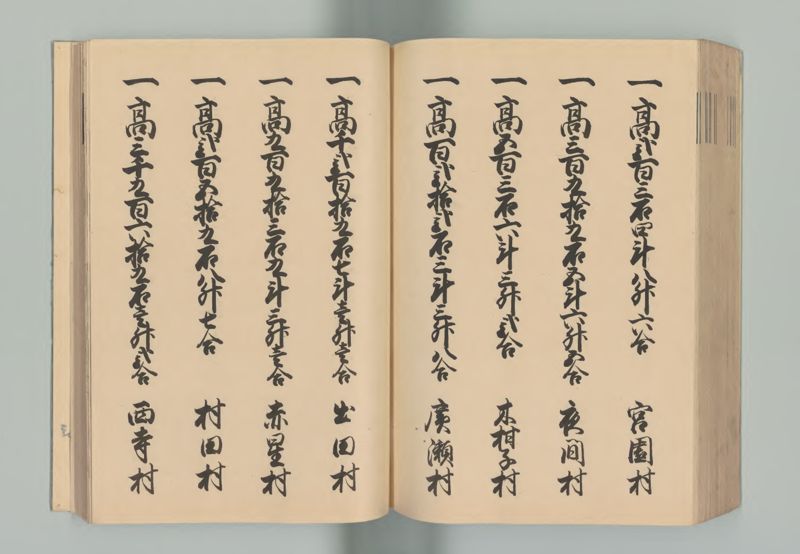 一高弐百三石四斗八升六合 宮園村
一高三百九拾九石五斗六升五合 夜間村
一高五百三石六斗三升弐合 木柑子村
一高百弐拾弐石三斗三升八合 廣瀬村
一高千弐百拾九石七斗壱升壱合 出田村
一高九百九拾三石九斗三升壱合 赤星村
一高弐百五拾九石八升七合 村田村
一高三千九百六拾九石壱升弐合 西寺村